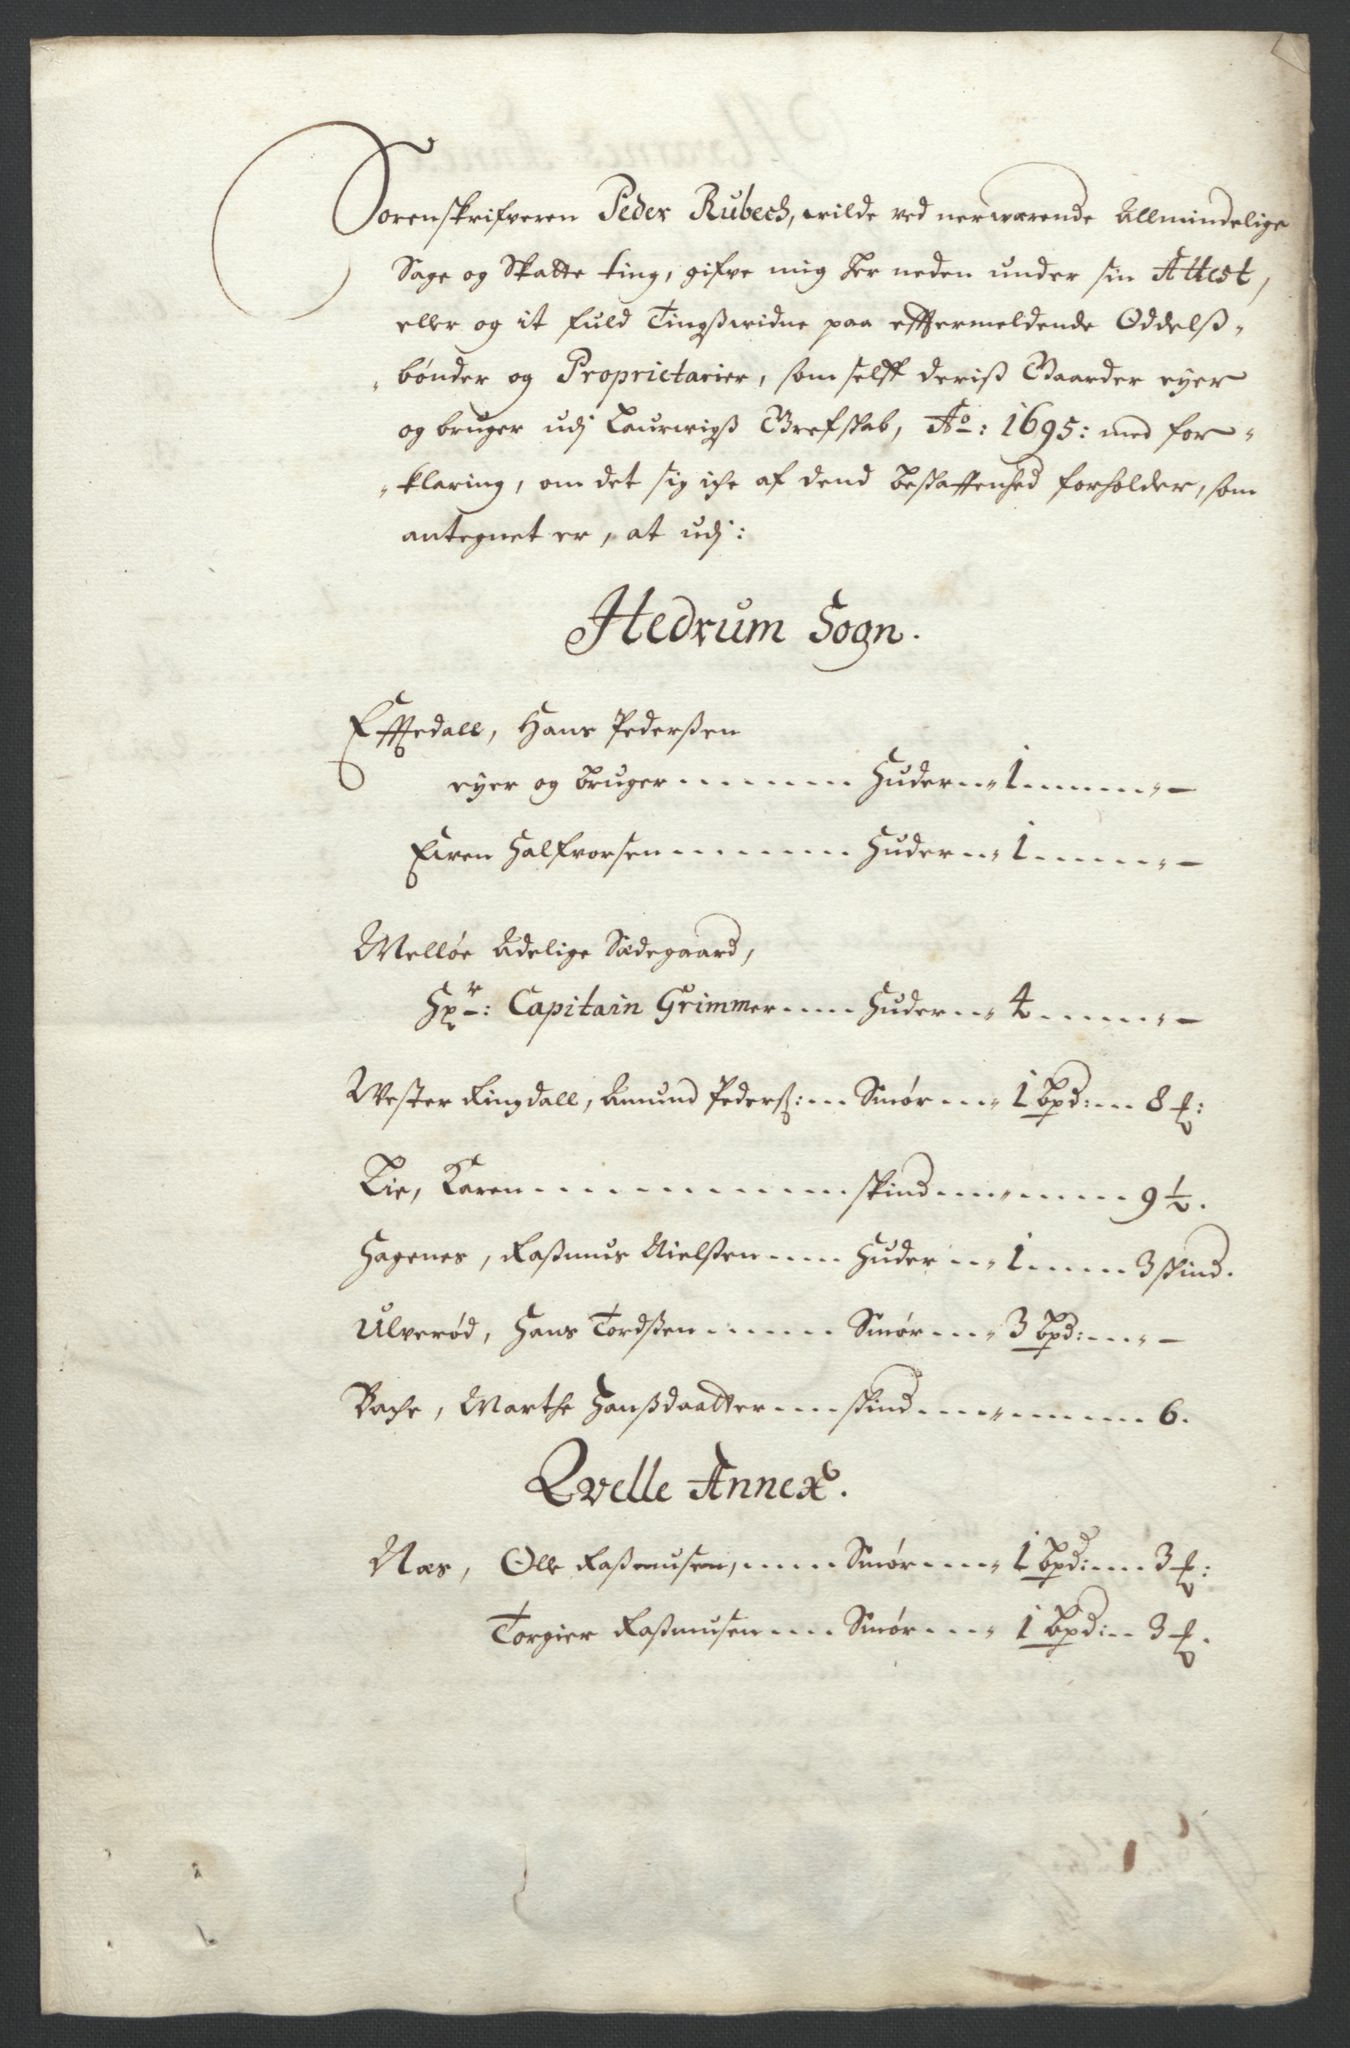 Sorenskrifveren Peder Rubech, wilde ved nerwærende Allmindelige
Sage og Skatte ting, gifve mig her neden under sin Attest,
eller og it fuld Tingßwidne paa effermeldende Oddelß-
bønder og Proprietarier, som selff deriß Gaarder eyer
og bruger udj Laurwigß Grefskab, Ao: 1695: med for-
klaring, om det sig iche af dend beskaffenhed forholder, som
antegnet er, at udj:
Hedrum Sogn.
Efftedall, Hans Pederßen
eyer og bruger ...... Huder ..„ 1 .....„ —
Even Halfvorsen ....... Huder ..„ 1 .....„ —
Melløe Adelige Sædegaard,
Hr: Capitain Grimmer .... Huder ..„ 4 .....„ —
Wester Ringdall, Amund Pederß: .. Smør ..„ 1 Bpd: .. 8 ℔:
Lie, Karen .......... skind ...„ ..... 9½.
Hagenes, Raßmus Nielßen .... Huder ..„ 1 .... 3 skind.
Ulverød, Hans Tordßen ..... Smør ..„ 3 Bpd: ..„ —
Bache, Marthe Hanßdaatter .... skind ...„ ...... 6.
Qvelle Annex.
Næs, Olle Raßmusen, .... Smør ...„ 1 Bpd: ... 3 ℔:
Torgier Raßmusen .... Smør ...„ 1 Bpd: .. 3 ℔.